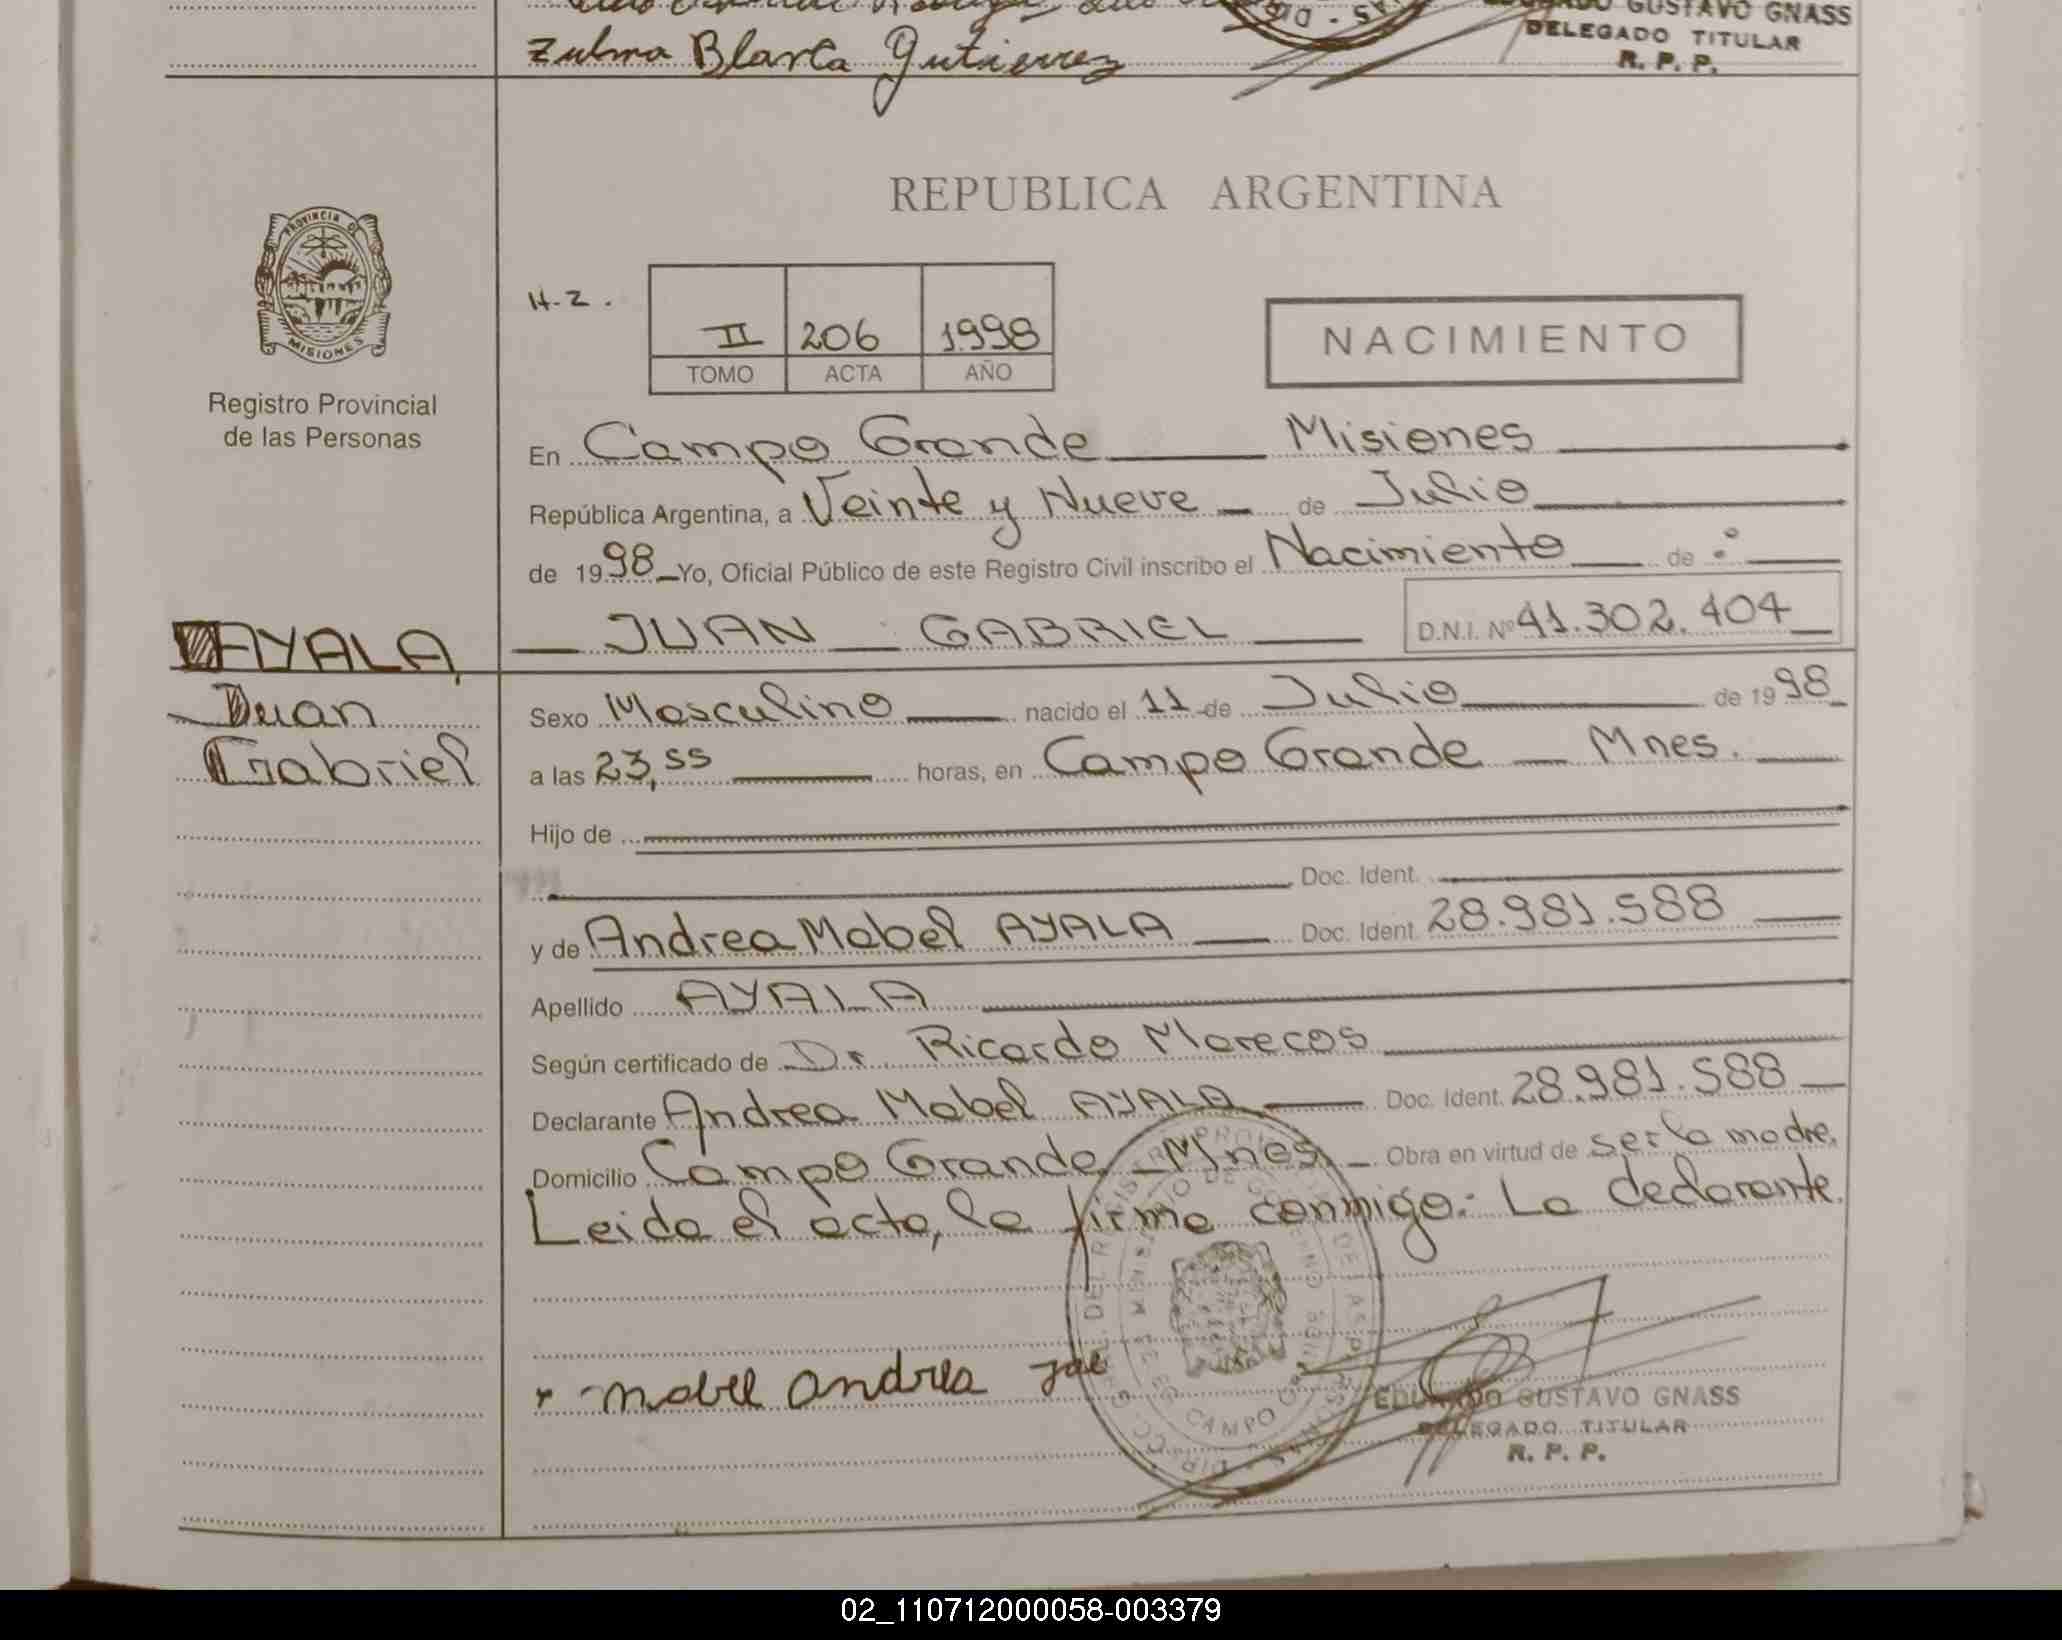 Zulma Blanca Gutierrez
GUSTAVO GNASS
DELEGADO TITULAR
R. P. P.
REPUBLICA ARGENTINA
PROVINCIA DE
MISIONES
Registro Provincial
de las Personas
H-2.
II 206 1998
TOMO ACTA AÑO
NACIMIENTO
En Campo Grande Misiones
República Argentina, a Veinte y Nueve de Julio
de 1998 Yo, Oficial Público de este Registro Civil inscribo el Nacimiento de :
JUAN GABRIEL D.N.I. Nº 41.302.404
AYALA,
Juan
Gabriel
Sexo Masculino nacido el 11 de Julio de 1998
a las 23,55 horas, en Campo Grande Mnes.
Hijo de
Doc. Ident.
y de Andrea Mabel AYALA Doc. Ident. 28.981.588
Apellido AYALA
Según certificado de Dr Ricardo Marecos
Declarante Andrea Mabel AYALA Doc. Ident. 28.981.588
Domicilio Campo Grande Mnes. Obra en virtud de ser la madre.
Leida el acta, la firma conmigo: La declarante.
mabel andrea
EDUARDO GUSTAVO GNASS
DELEGADO TITULAR
R. P. P.
CAMPO
02_110712000058-003379